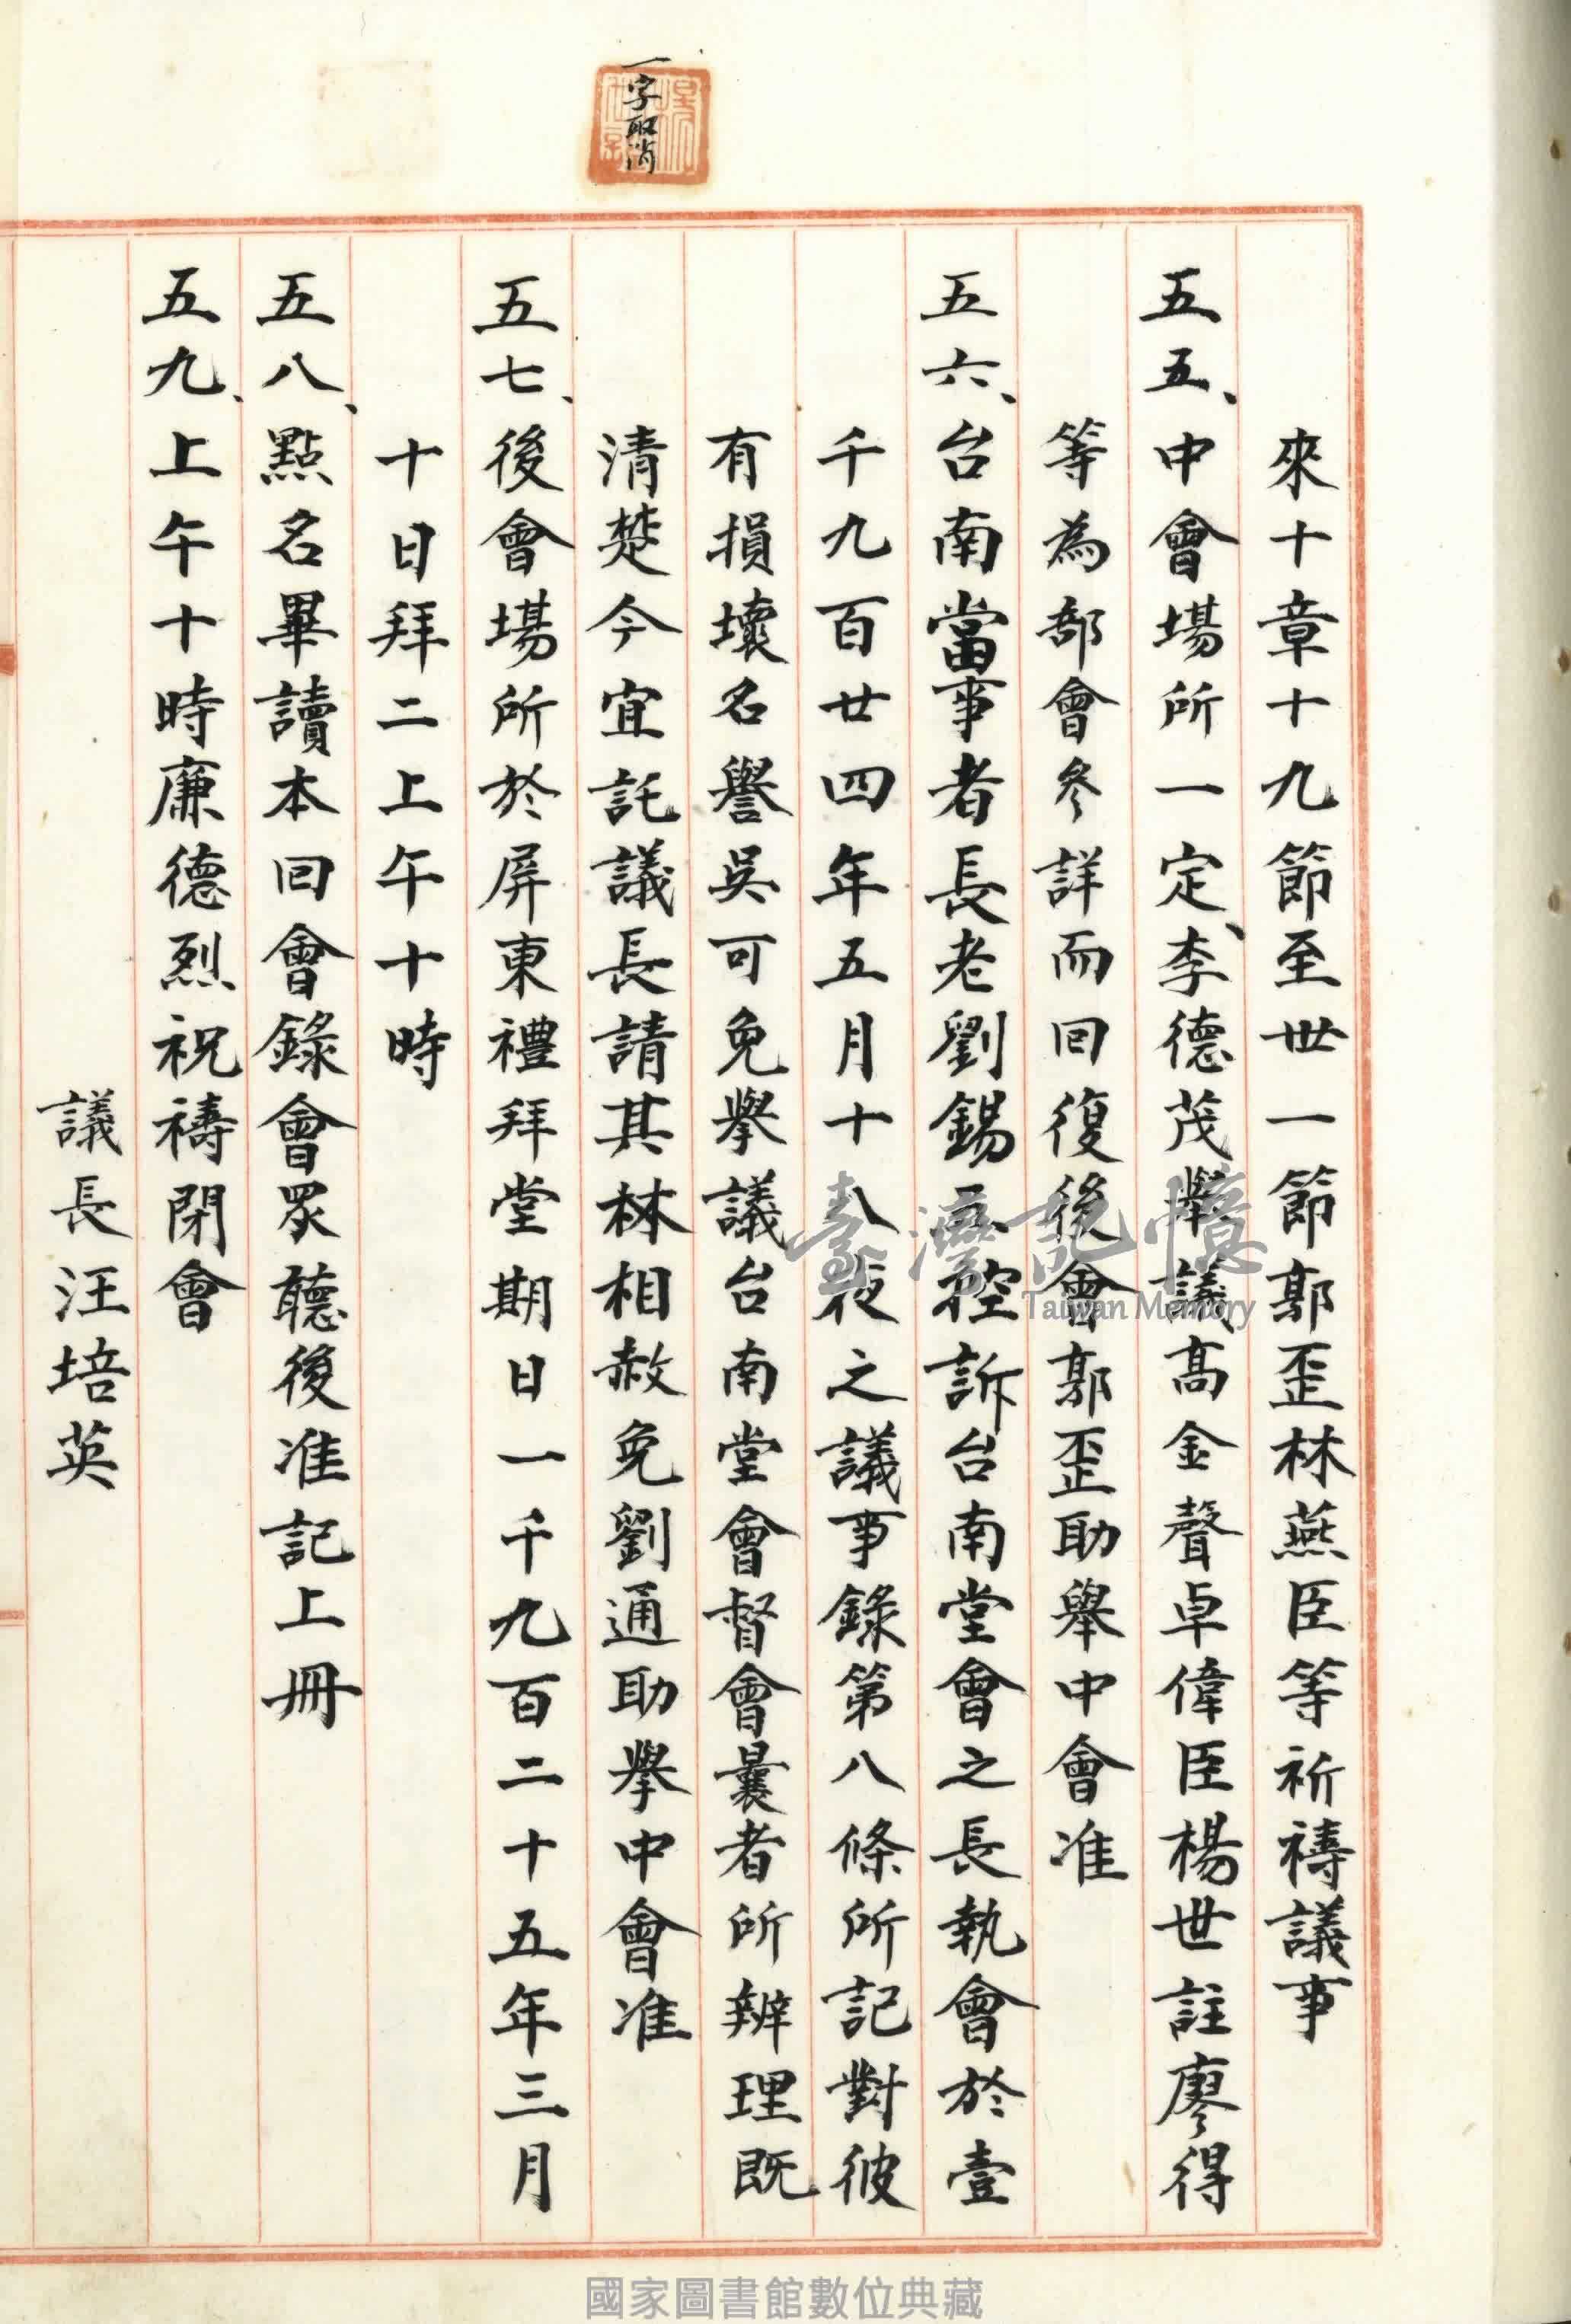 一字取消
來十章十九節至卅一節郭歪林燕臣等祈禱議事
五五、中會場所一定、李德茂舉議高金聲卓偉臣楊世註廖得
等為部會參詳而回復後會郭歪助舉中會准
五六、台南當事者長老劉錫五控訴台南堂會之長執會於壹
千九百廿四年五月十八夜之議事錄第八條所記對彼
有損壞名譽吳可免舉議台南堂會督會曩者所辨理既
清楚今宜託議長請其林相赦免劉通助舉中會准
五七、後會場所於屏東禮拜堂期日一千九百二十五年三月
十日拜二上午十時
五八、點名畢讀本回會錄會眾聽後准記上冊
五九、上午十時廉德烈祝禱閉會
議長汪培英
臺灣記憶
Taiwan Memory
國家圖書館數位典藏